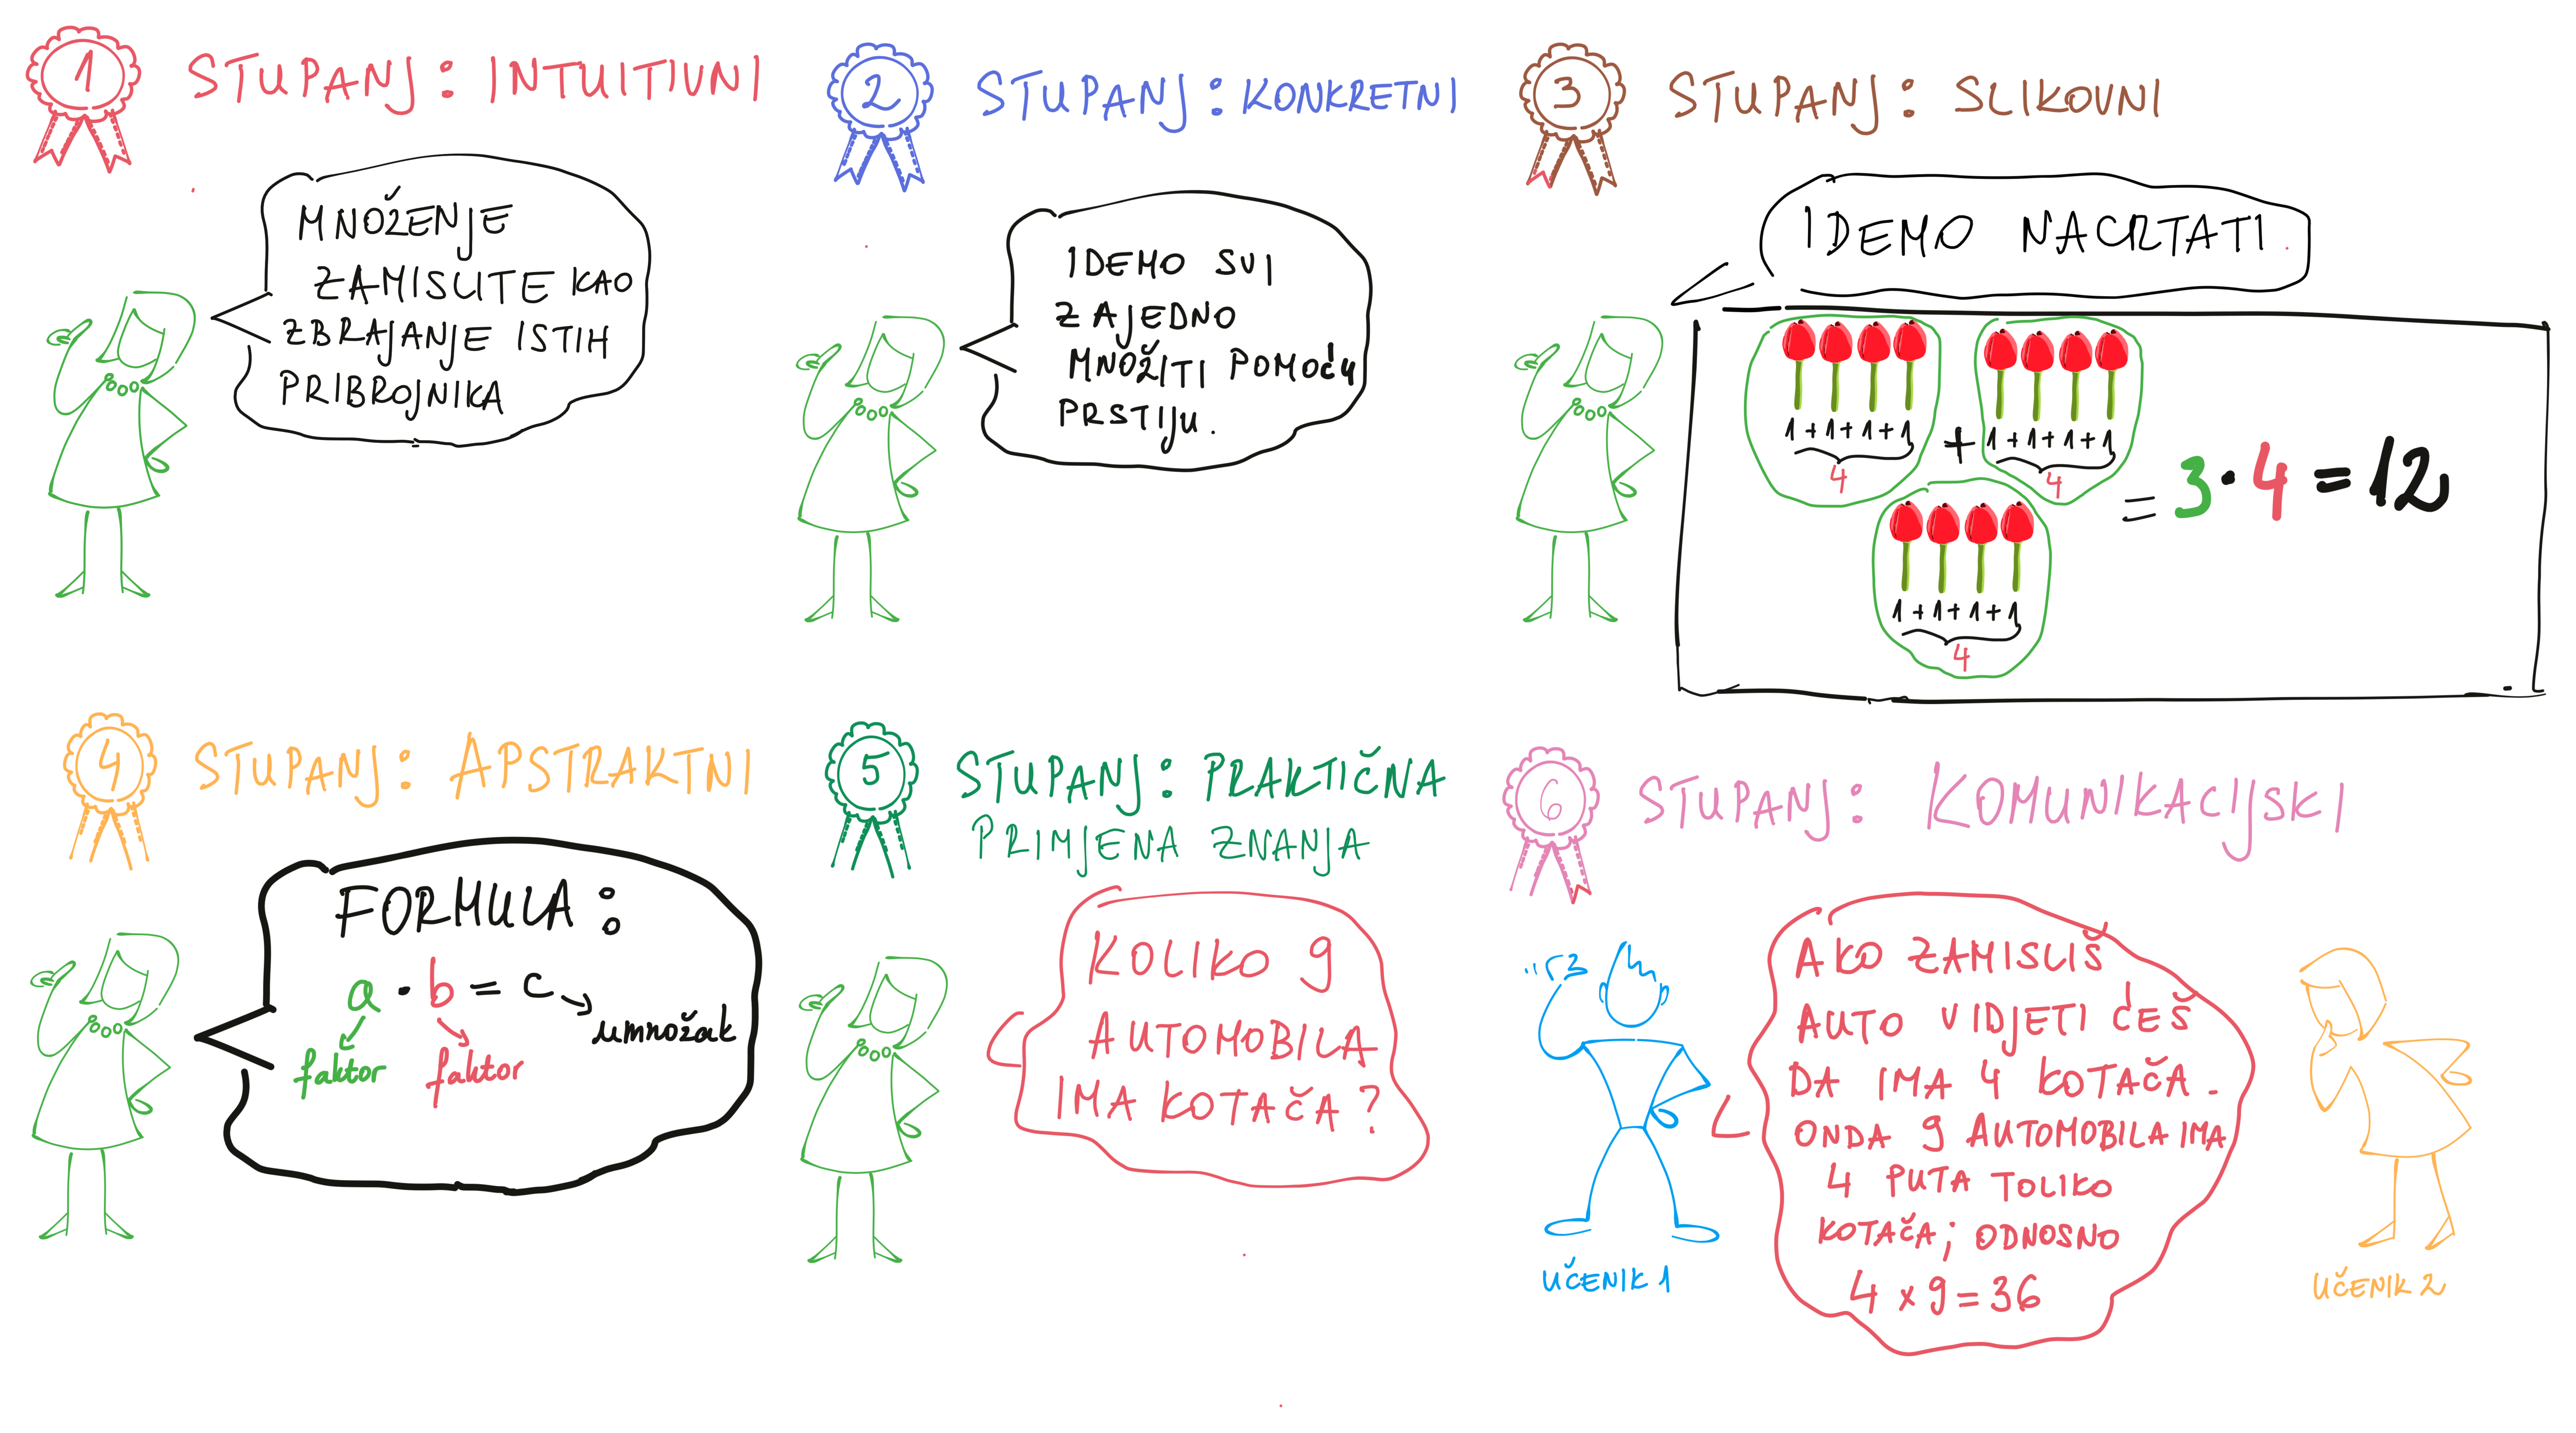 1 STUPANJ: INTUITIVNI
MNOŽENJE
ZAMISLITE KAO
ZBRAJANJE ISTIH
PRIBROJNIKA
2 STUPANJ: KONKRETNI
IDEMO SVI
ZAJEDNO
MNOŽITI POMOĆU
PRSTIJU.
3 STUPANJ: SLIKOVNI
IDEMO NACRTATI.
1+1+1+1 + 1+1+1+1
4 4
= 3·4=12
1+1+1+1
4
4 STUPANJ: APSTRAKTNI
FORMULA:
a · b = c
umnožak
faktor faktor
5 STUPANJ: PRAKTIČNA
PRIMJENA ZNANJA
KOLIKO 9
AUTOMOBILA
IMA KOTAČA?
6 STUPANJ: KOMUNIKACIJSKI
AKO ZAMISLIŠ
AUTO VIDJETI ĆEŠ
DA IMA 4 KOTAČA.
ONDA 9 AUTOMOBILA IMA
4 PUTA TOLIKO
KOTAČA; ODNOSNO
4 x 9 = 36
UČENIK 1
UČENIK 2